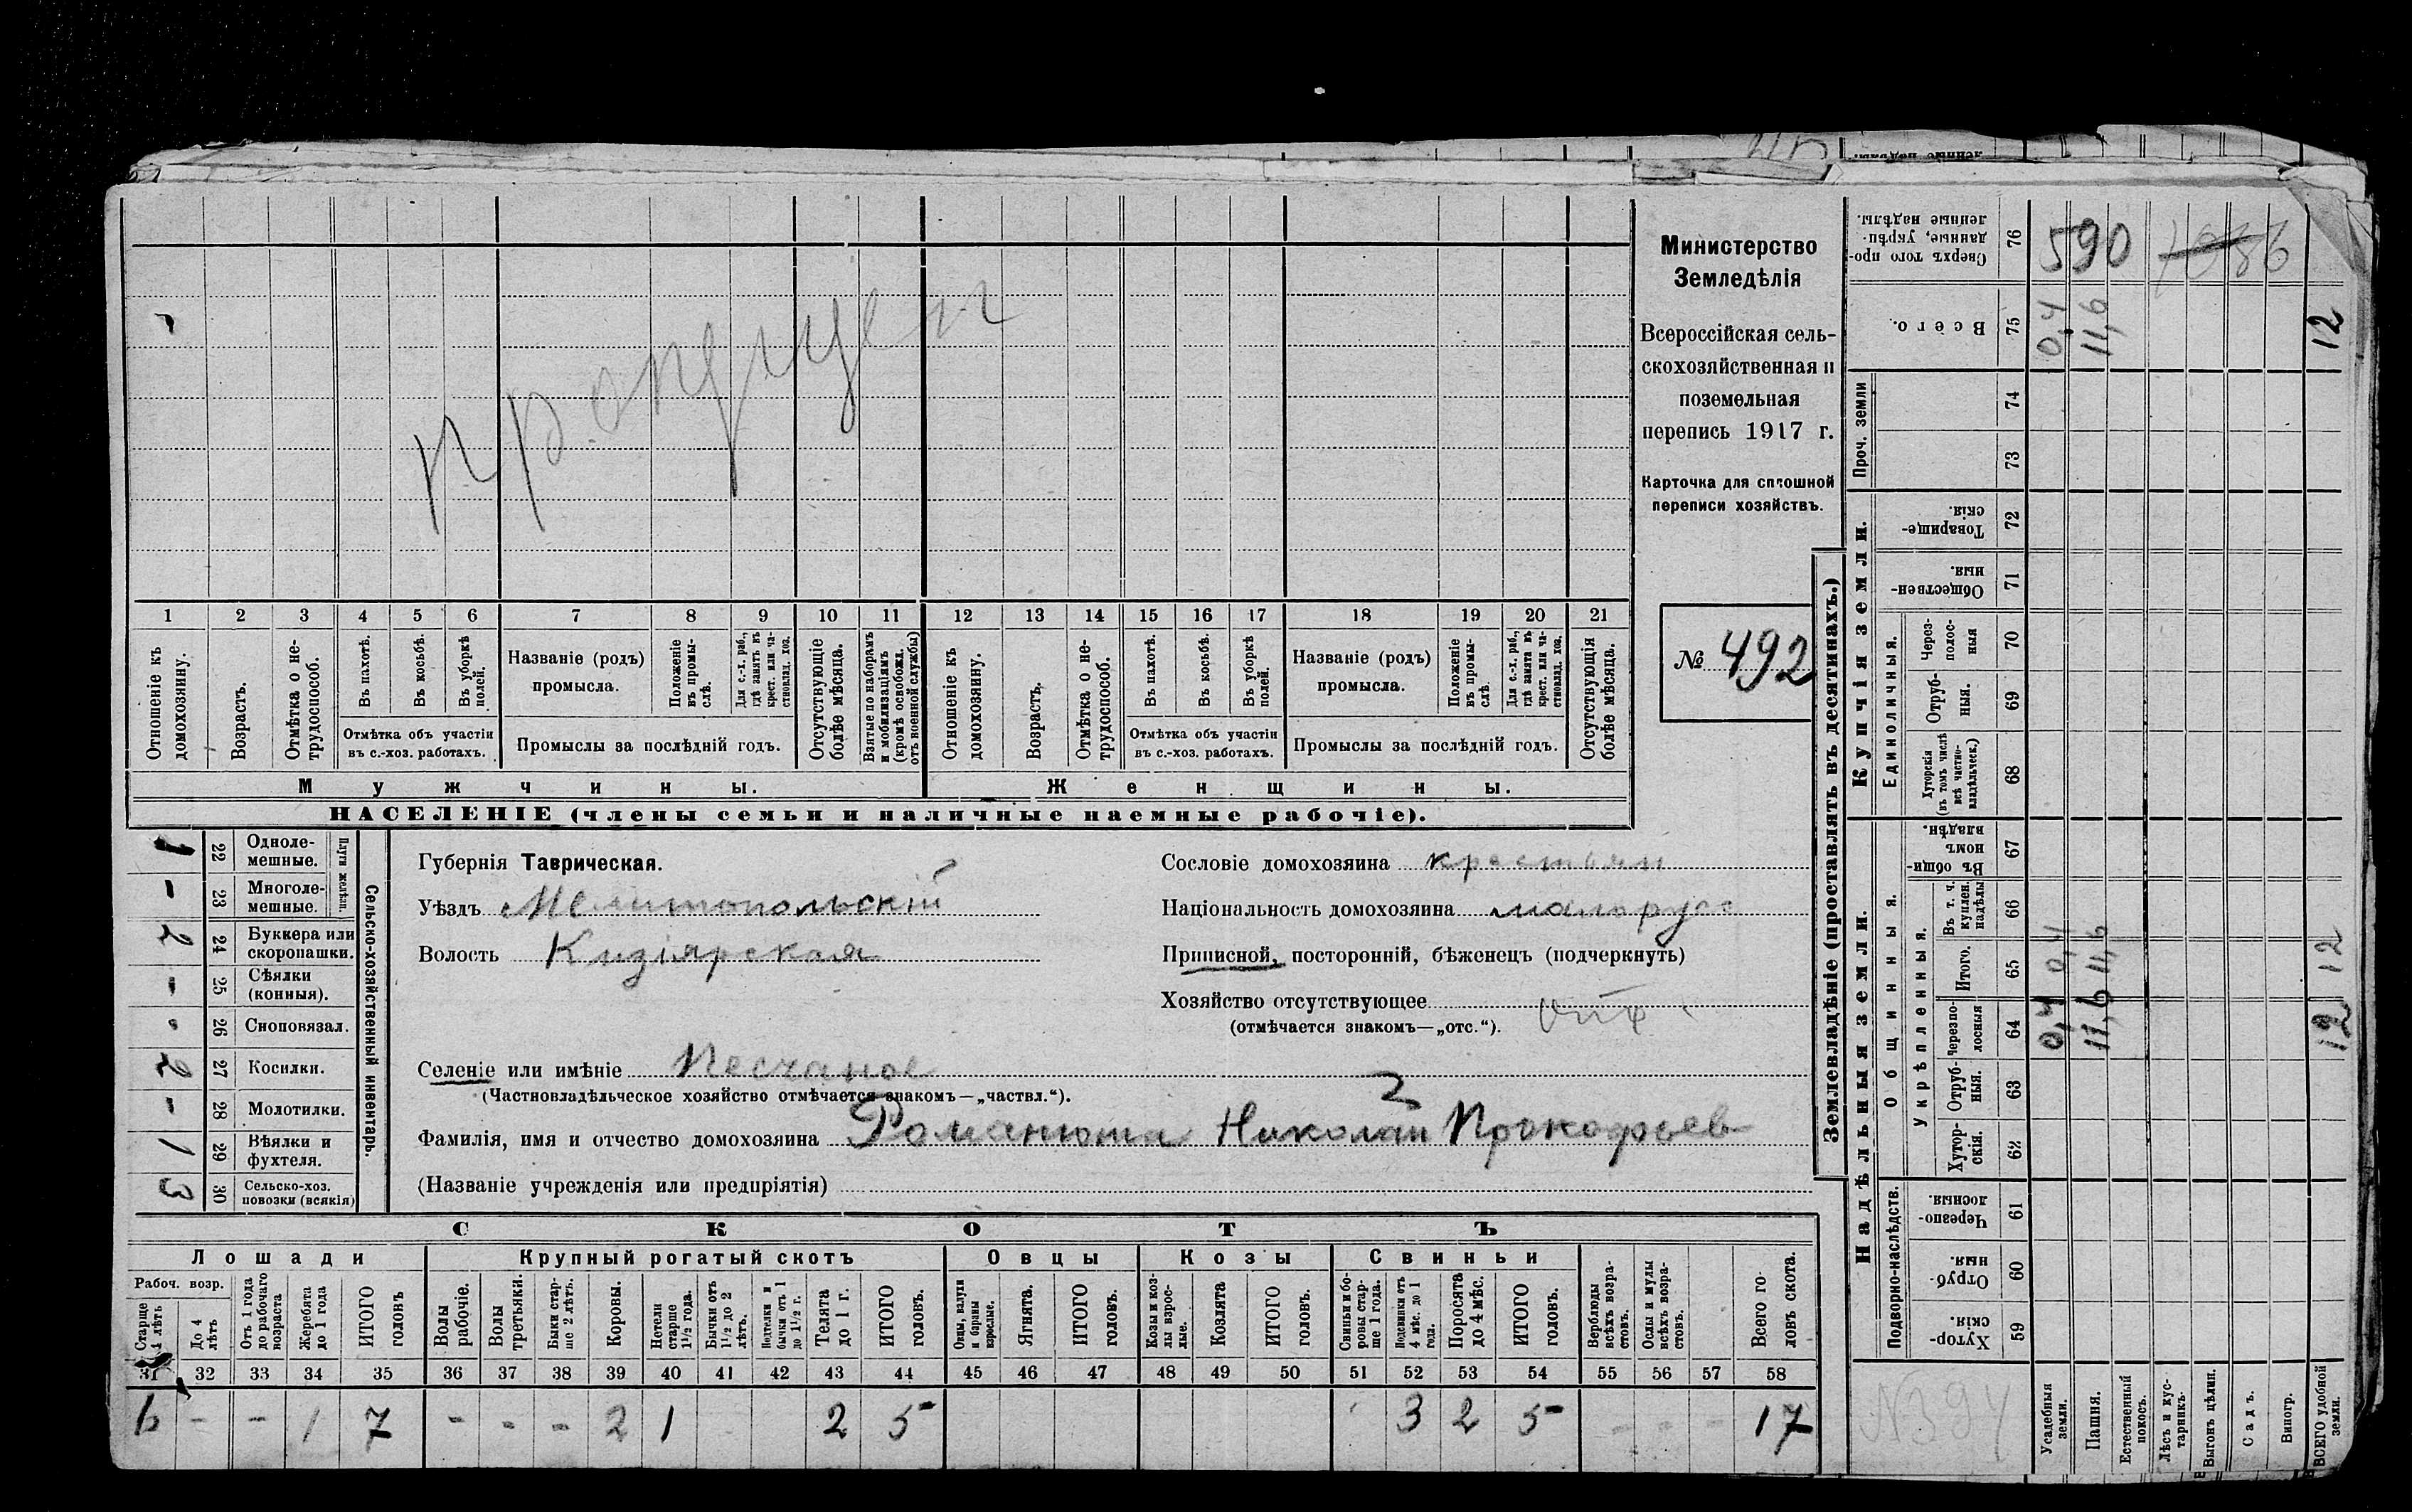 пропущен
1 2 3 4 5 6 7 8 9 10 11 12 13 14 15 16 17 18 19 20 21
Отношеніе къ домохозяину.
Возрастъ.
Отмѣтка о не-
трудоспособ.
Въ пахотѣ.
Въ косьбѣ.
Въ уборкѣ полей.
Отмѣтка объ участіи
въ с.-хоз. работахъ.
Названіе (родъ)
промысла.
Положеніе въ промы-
слѣ.
Для с.-х. раб., гдѣ занятъ въ крест. или ча-
стновлад. хоз.
Промыслы за послѣдній годъ.
Отсутствующіе болѣе мѣсяца.
Взятые по наборамъ и мобилизаціямъ (кромѣ освобожд. отъ военной службы)
Отношеніе къ домохозяину.
Возрастъ.
Отмѣтка о не-
трудоспособ.
Въ пахотѣ.
Въ косьбѣ.
Въ уборкѣ полей.
Отмѣтка объ участіи
въ с.-хоз. работахъ.
Названіе (родъ)
промысла.
Положеніе въ промы-
слѣ.
Для с.-х. раб., гдѣ занята въ крест. или ча-
стновлад. хоз.
Промыслы за послѣдній годъ.
Отсутствующія болѣе мѣсяца.
Мужчины.
Женщины.
НАСЕЛЕНІЕ (члены семьи и наличные наемные рабочіе).
Министерство
Земледѣлія
Всероссійская сель-
скохозяйственная и
поземельная
перепись 1917 г.
Карточка для сплошной
переписи хозяйствъ.
№ 492
Сельско-хозяйственный инвентарь.
Плуги желѣзн.
1 22 Одноле-
мешные.
- 23 Многоле-
мешные.
2 24 Буккера или
скоропашки.
- 25 Сѣялки
(конныя).
26 Сноповязал.
2 27 Косилки.
- 28 Молотилки.
1 29 Вѣялки и
фухтеля.
3 30 Сельско-хоз.
повозки (всякія)
Губернія Таврическая.
Уѣздъ Мелитопольскій
Волость Кизіярская
Селеніе или имѣніе Песчаное
(Частновладѣльческое хозяйство отмѣчается знакомъ—„частвл.“).
2
Фамилія, имя и отчество домохозяина Романюта Николай Прокофьев
(Названіе учрежденія или предпріятія)
Сословіе домохозяина крестьян
Національность домохозяина малорусс
Приписной, посторонній, бѣженецъ (подчеркнуть)
Хозяйство отсутствующее
(отмѣчается знакомъ—„отс.“).
СКОТЪ
Лошади
Рабоч. возр.
Старше 4 лѣтъ
До 4 лѣтъ
Отъ 1 года до рабочаго возраста
Жеребята до 1 года
ИТОГО головъ
Крупный рогатый скотъ
Волы рабочіе.
Волы третьяки.
Быки стар-
ше 2 лѣтъ.
Коровы.
Нетели старше 1½ года.
Бычки отъ 1½ до 2 лѣтъ.
Подтелки и бычки отъ 1 до 1½ г.
Телята до 1 г.
ИТОГО головъ.
Овцы
Овцы, валухи и бараны взрослые.
Ягнята.
ИТОГО головъ.
Козы
Козы и коз-
лы взрос-
лые.
Козлята
ИТОГО головъ.
Свиньи
Свиньи и бо-
ровы стар-
ше 1 года.
Подсвинки отъ 4 мѣс. до 1 года.
Поросята до 4 мѣс.
ИТОГО головъ.
Верблюды всѣхъ возра-
стовъ.
Ослы и мулы всѣхъ возра-
стовъ.
Всего го-
ловъ скота.
31 32 33 34 35 36 37 38 39 40 41 42 43 44 45 46 47 48 49 50 51 52 53 54 55 56 57 58
6 - - 1 7 - - - 2 1 2 5 3 2 5 - - - 17
Землевладѣніе (проставлять въ десятинахъ.)
Купчія земли.
Надѣльныя земли.
Проч. земли
Единоличныя.
Общинныя.
Укрѣпленныя.
Подворно-наслѣдств.
Сверхъ того про-
данные, укрѣп-
ленные надѣлы. 76 590 1086
Всего. 75 0,4 11,6 12
74
73
Товарище-
скія. 72
Обществен-
ныя. 71
Через-
полос-
ныя 70
Отруб-
ныя. 69
Хуторскія (въ томъ числѣ всѣ частно-
владѣльческ.) 68
Въ общи-
номъ
владѣн. 67
Въ т. ч. куплен. надѣлы 66
Итого. 65 0,4 11,6 12
Черезпо-
лосныя 64 0,4 11,6 12
Отруб-
ныя. 63
Хутор-
скія. 62
Черезпо-
лосныя. 61
Отруб-
ныя. 60
Хутор-
скія. 59
Усадебныя земли.
Пашня.
Естественный покосъ.
Лѣсъ и кус-
тарникъ.
Выгонъ цѣлин.
Садъ.
Виногр.
ВСЕГО удобной земли.
N394